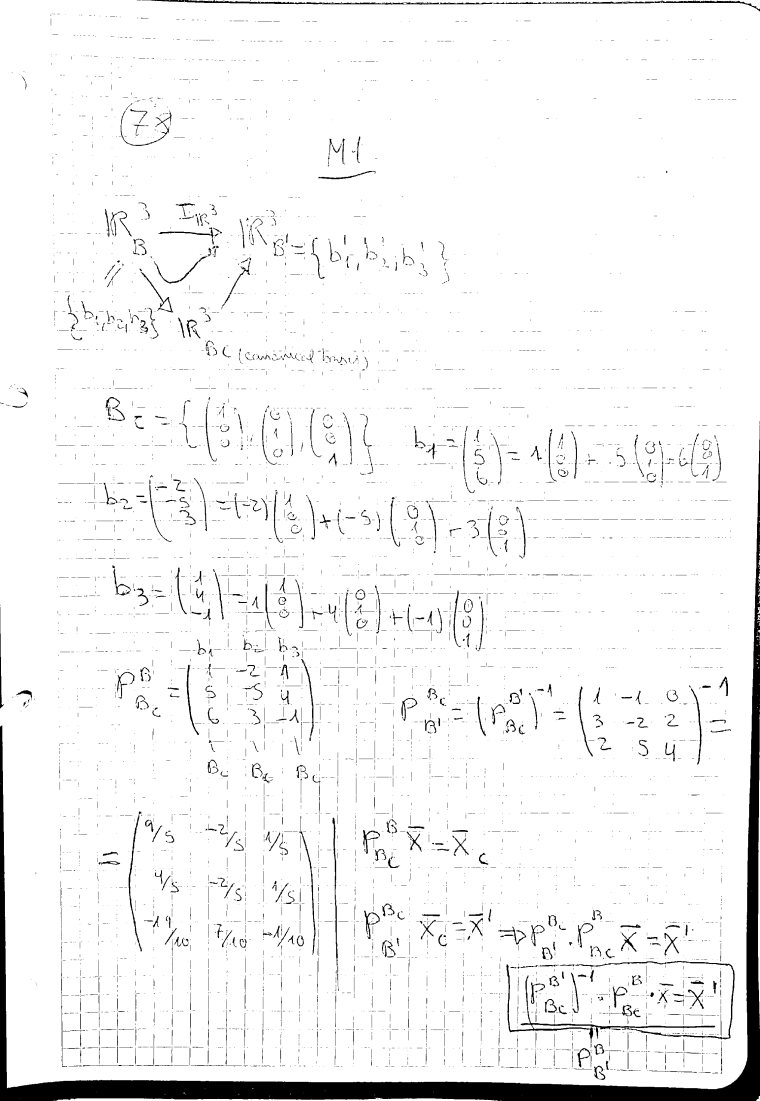 7
M1
IR³_B → I_IR³ → IR³_B' = {b'₁, b'₂, b'₃}
{b₁, b₂, b₃} IR³
Bc (canonical basis)
Bc = { (1 0 0), (0 1 0), (0 0 1) } b₁ = (1 5 6) = 1 (1 0 0) + 5 (0 1 0) + 6 (0 0 1)
b₂ = (-2 -5 3) = (-2) (1 0 0) + (-5) (0 1 0) + 3 (0 0 1)
b₃ = (1 4 -1) = 1 (1 0 0) + 4 (0 1 0) + (-1) (0 0 1)
b₁ b₂ b₃
P^B_Bc = (1 -2 1
5 -5 4
6 3 -1)
Bc Bc Bc
P^Bc_B' = (P^B'_Bc)^-1 = (1 -1 0
3 -2 2
2 5 4)^-1 =
= (9/5 -2/5 1/5
4/5 -2/5 1/5
-19/10 7/10 -1/10)
P^B_Bc x̄ = x̄c
P^Bc_B' x̄c = x̄' ⇒ P^Bc_B' · P^B_Bc x̄ = x̄'
(P^B'_Bc)^-1 · P^B_Bc · x̄ = x̄'
P^B_B'